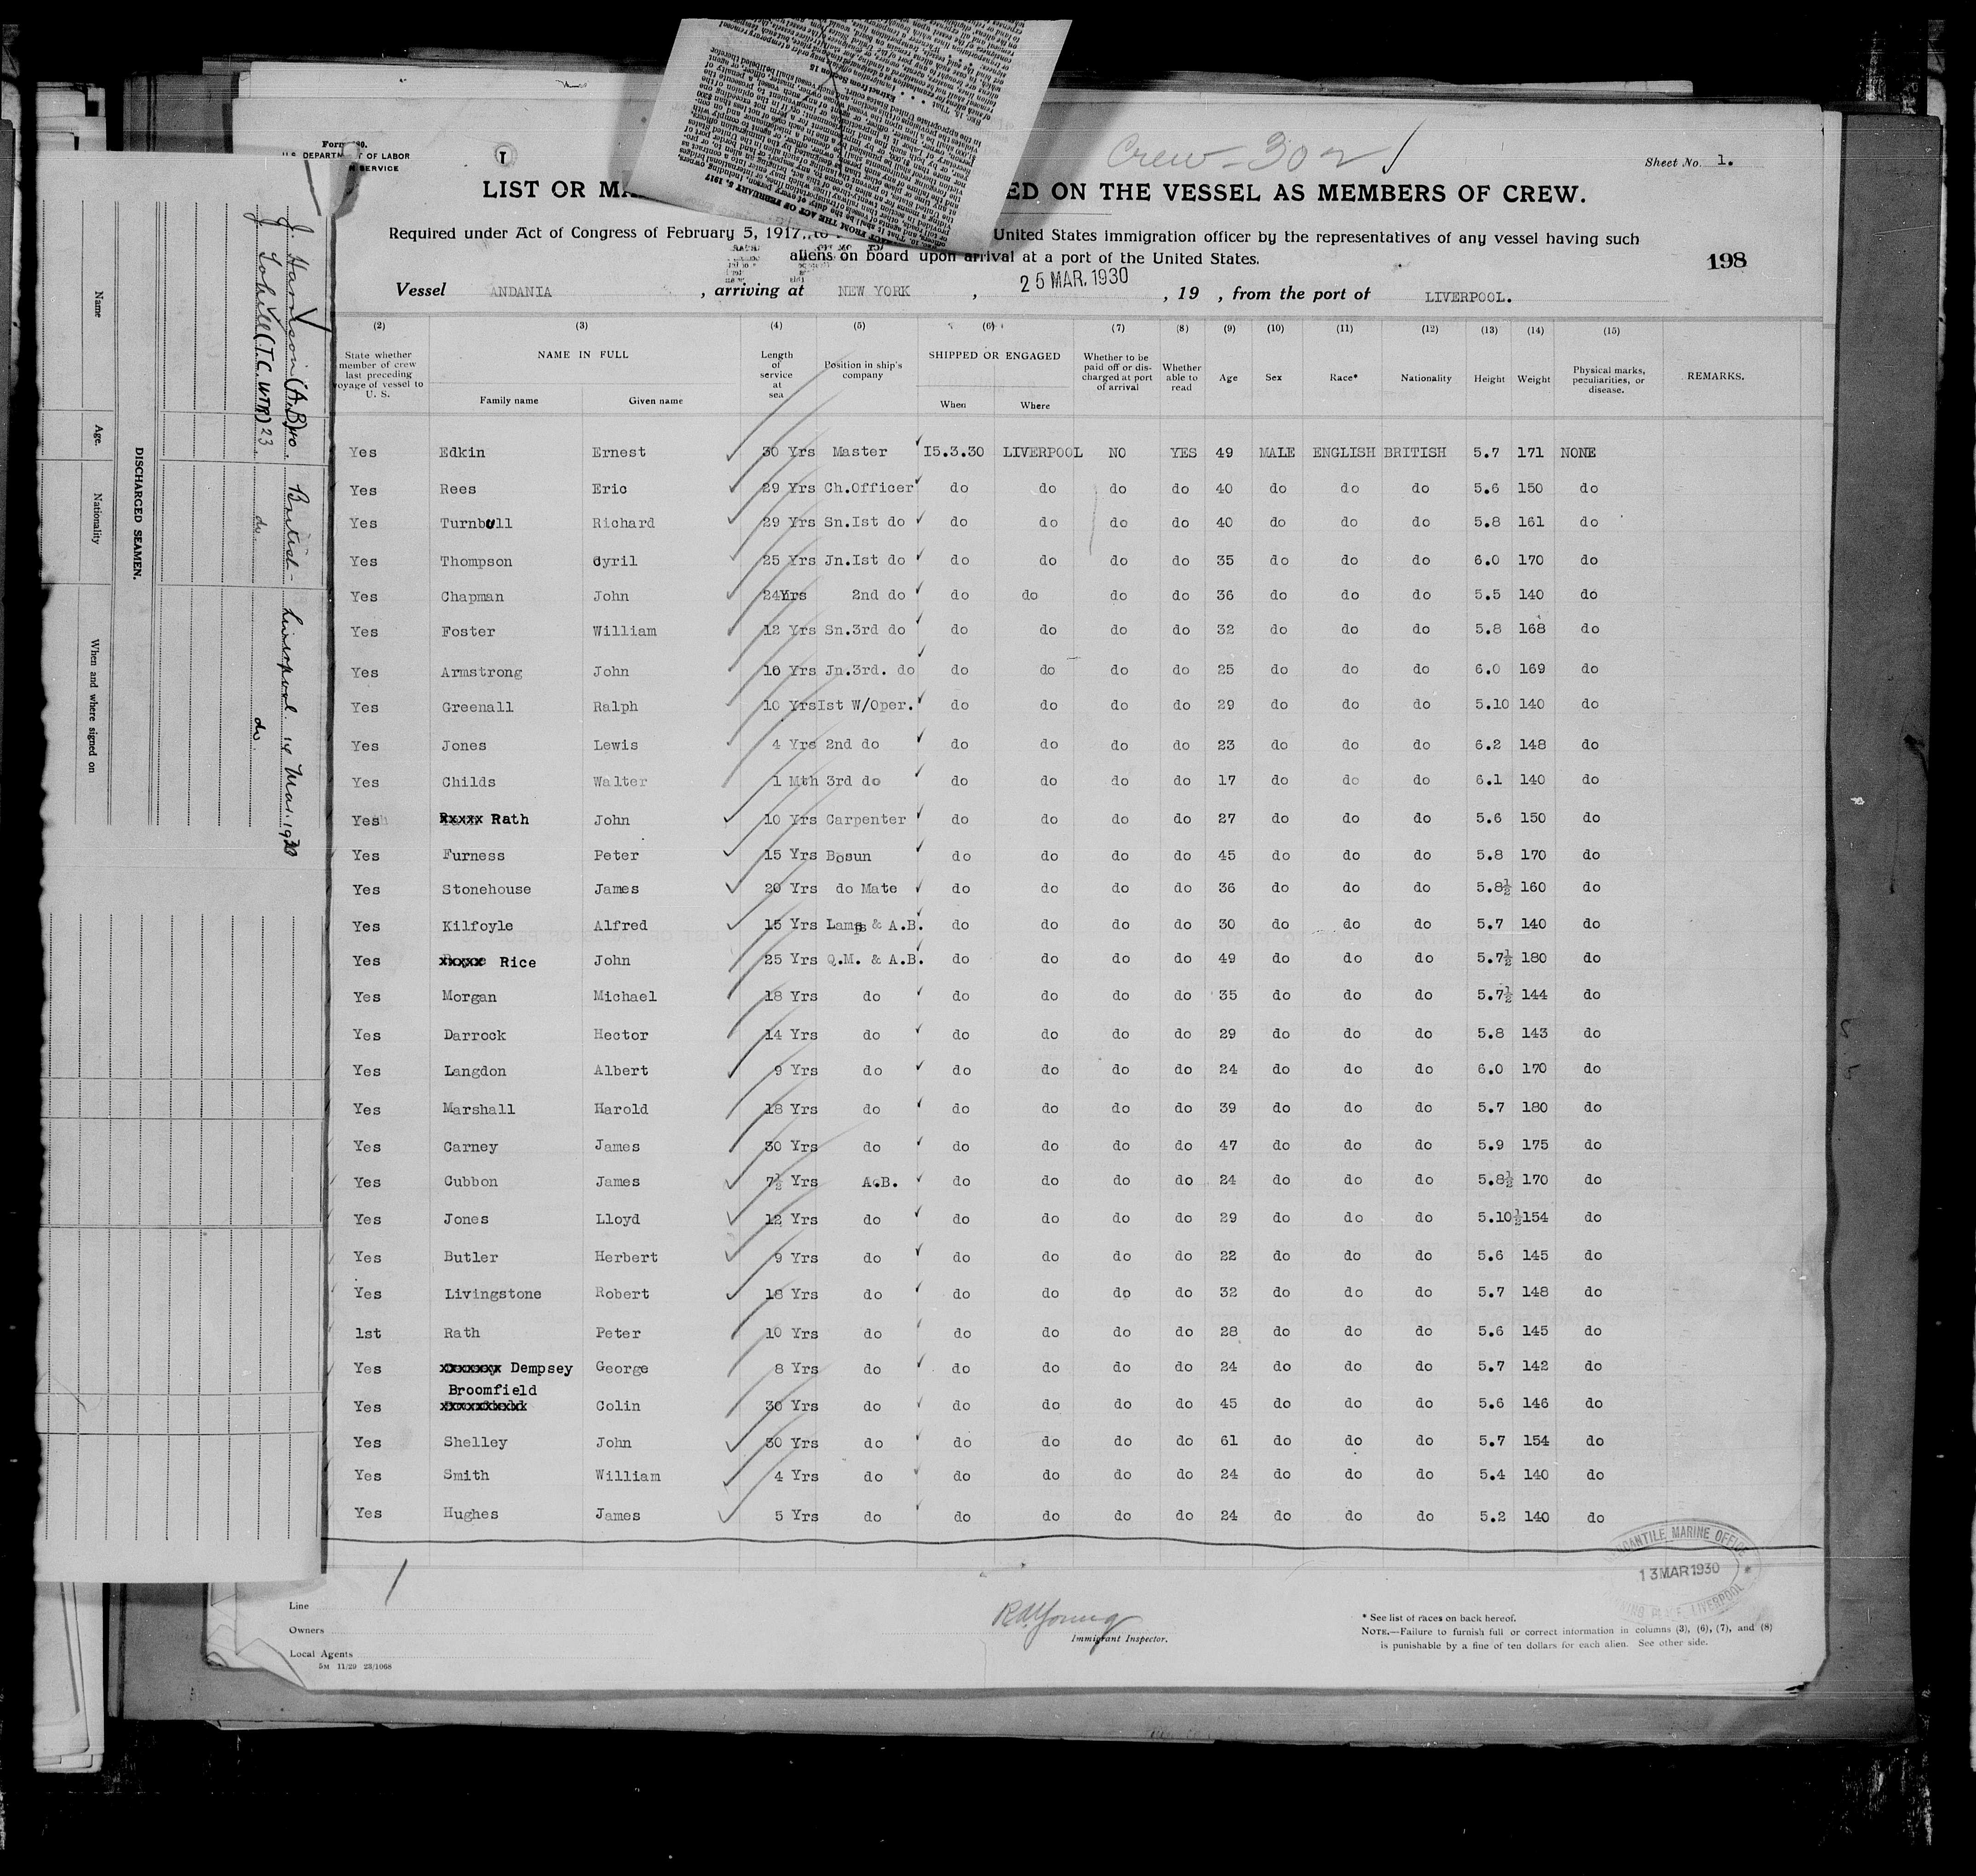 U.S. DEPARTMENT OF LABOR
SERVICE
T
Crew - 302
Sheet No. 1.
LIST OR MA
ED ON THE VESSEL AS MEMBERS OF CREW.
Required under Act of Congress of February 5, 1917, to
United States immigration officer by the representatives of any vessel having such
aliens on board upon arrival at a port of the United States.
198
Vessel ANDANIA , arriving at NEW YORK , 25 MAR. 1930 , 19 , from the port of LIVERPOOL.
(2) (3) (4) (5) (6) (7) (8) (9) (10) (11) (12) (13) (14) (15)
State whether member of crew last preceding voyage of vessel to U. S. NAME IN FULL Family name Given name Length of service at sea Position in ship's company SHIPPED OR ENGAGED When Where Whether to be paid off or discharged at port of arrival Whether able to read Age Sex Race* Nationality Height Weight Physical marks, peculiarities, or disease. REMARKS.
Yes Edkin Ernest 30 Yrs Master 15.3.30 LIVERPOOL NO YES 49 MALE ENGLISH BRITISH 5.7 171 NONE
Yes Rees Eric 29 Yrs Ch.Officer do do do do 40 do do do 5.6 150 do
Yes Turnbull Richard 29 Yrs Sn.Ist do do do do do 40 do do do 5.8 161 do
Yes Thompson Cyril 25 Yrs Jn.Ist do do do do do 35 do do do 6.0 170 do
Yes Chapman John 24Yrs 2nd do do do do do 36 do do do 5.5 140 do
Yes Foster William 12 Yrs Sn.3rd do do do do do 32 do do do 5.8 168 do
Yes Armstrong John 10 Yrs Jn.3rd. do do do do do 25 do do do 6.0 169 do
Yes Greenall Ralph 10 Yrs Ist W/Oper. do do do do 29 do do do 5.10 140 do
Yes Jones Lewis 4 Yrs 2nd do do do do do 23 do do do 6.2 148 do
Yes Childs Walter 1 Mth 3rd do do do do do 17 do do do 6.1 140 do
Yes Rath John 10 Yrs Carpenter do do do do 27 do do do 5.6 150 do
Yes Furness Peter 15 Yrs Bosun do do do do 45 do do do 5.8 170 do
Yes Stonehouse James 20 Yrs do Mate do do do do 36 do do do 5.8½ 160 do
Yes Kilfoyle Alfred 15 Yrs Lamps & A.B. do do do do 30 do do do 5.7 140 do
Yes Rice John 25 Yrs Q.M. & A.B. do do do do 49 do do do 5.7½ 180 do
Yes Morgan Michael 18 Yrs do do do do do 35 do do do 5.7½ 144 do
Yes Darrock Hector 14 Yrs do do do do do 29 do do do 5.8 143 do
Yes Langdon Albert 9 Yrs do do do do do 24 do do do 6.0 170 do
Yes Marshall Harold 18 Yrs do do do do do 39 do do do 5.7 180 do
Yes Carney James 30 Yrs do do do do do 47 do do do 5.9 175 do
Yes Cubbon James 7½ Yrs A.B. do do do do 24 do do do 5.8½ 170 do
Yes Jones Lloyd 12 Yrs do do do do do 29 do do do 5.10½ 154 do
Yes Butler Herbert 9 Yrs do do do do do 22 do do do 5.6 145 do
Yes Livingstone Robert 18 Yrs do do do do do 32 do do do 5.7 148 do
1st Rath Peter 10 Yrs do do do do do 28 do do do 5.6 145 do
Yes Dempsey George 8 Yrs do do do do do 24 do do do 5.7 142 do
Yes Broomfield Colin 30 Yrs do do do do do 45 do do do 5.6 146 do
Yes Shelley John 30 Yrs do do do do do 61 do do do 5.7 154 do
Yes Smith William 4 Yrs do do do do do 24 do do do 5.4 140 do
Yes Hughes James 5 Yrs do do do do do 24 do do do 5.2 140 do
MERCANTILE MARINE OFFICE
13 MAR 1930
LIVERPOOL
Line
Owners
Local Agents
5M 11/29 23/1068
R.W. Young
Immigrant Inspector.
* See list of races on back hereof.
NOTE.—Failure to furnish full or correct information in columns (3), (6), (7), and (8)
is punishable by a fine of ten dollars for each alien. See other side.
DISCHARGED SEAMEN.
Name Age. Nationality When and where signed on
J. Harrison (A.B) 40 British Liverpool 14 Mar. 1930
J. (T.C. WTR) 23 do. do.